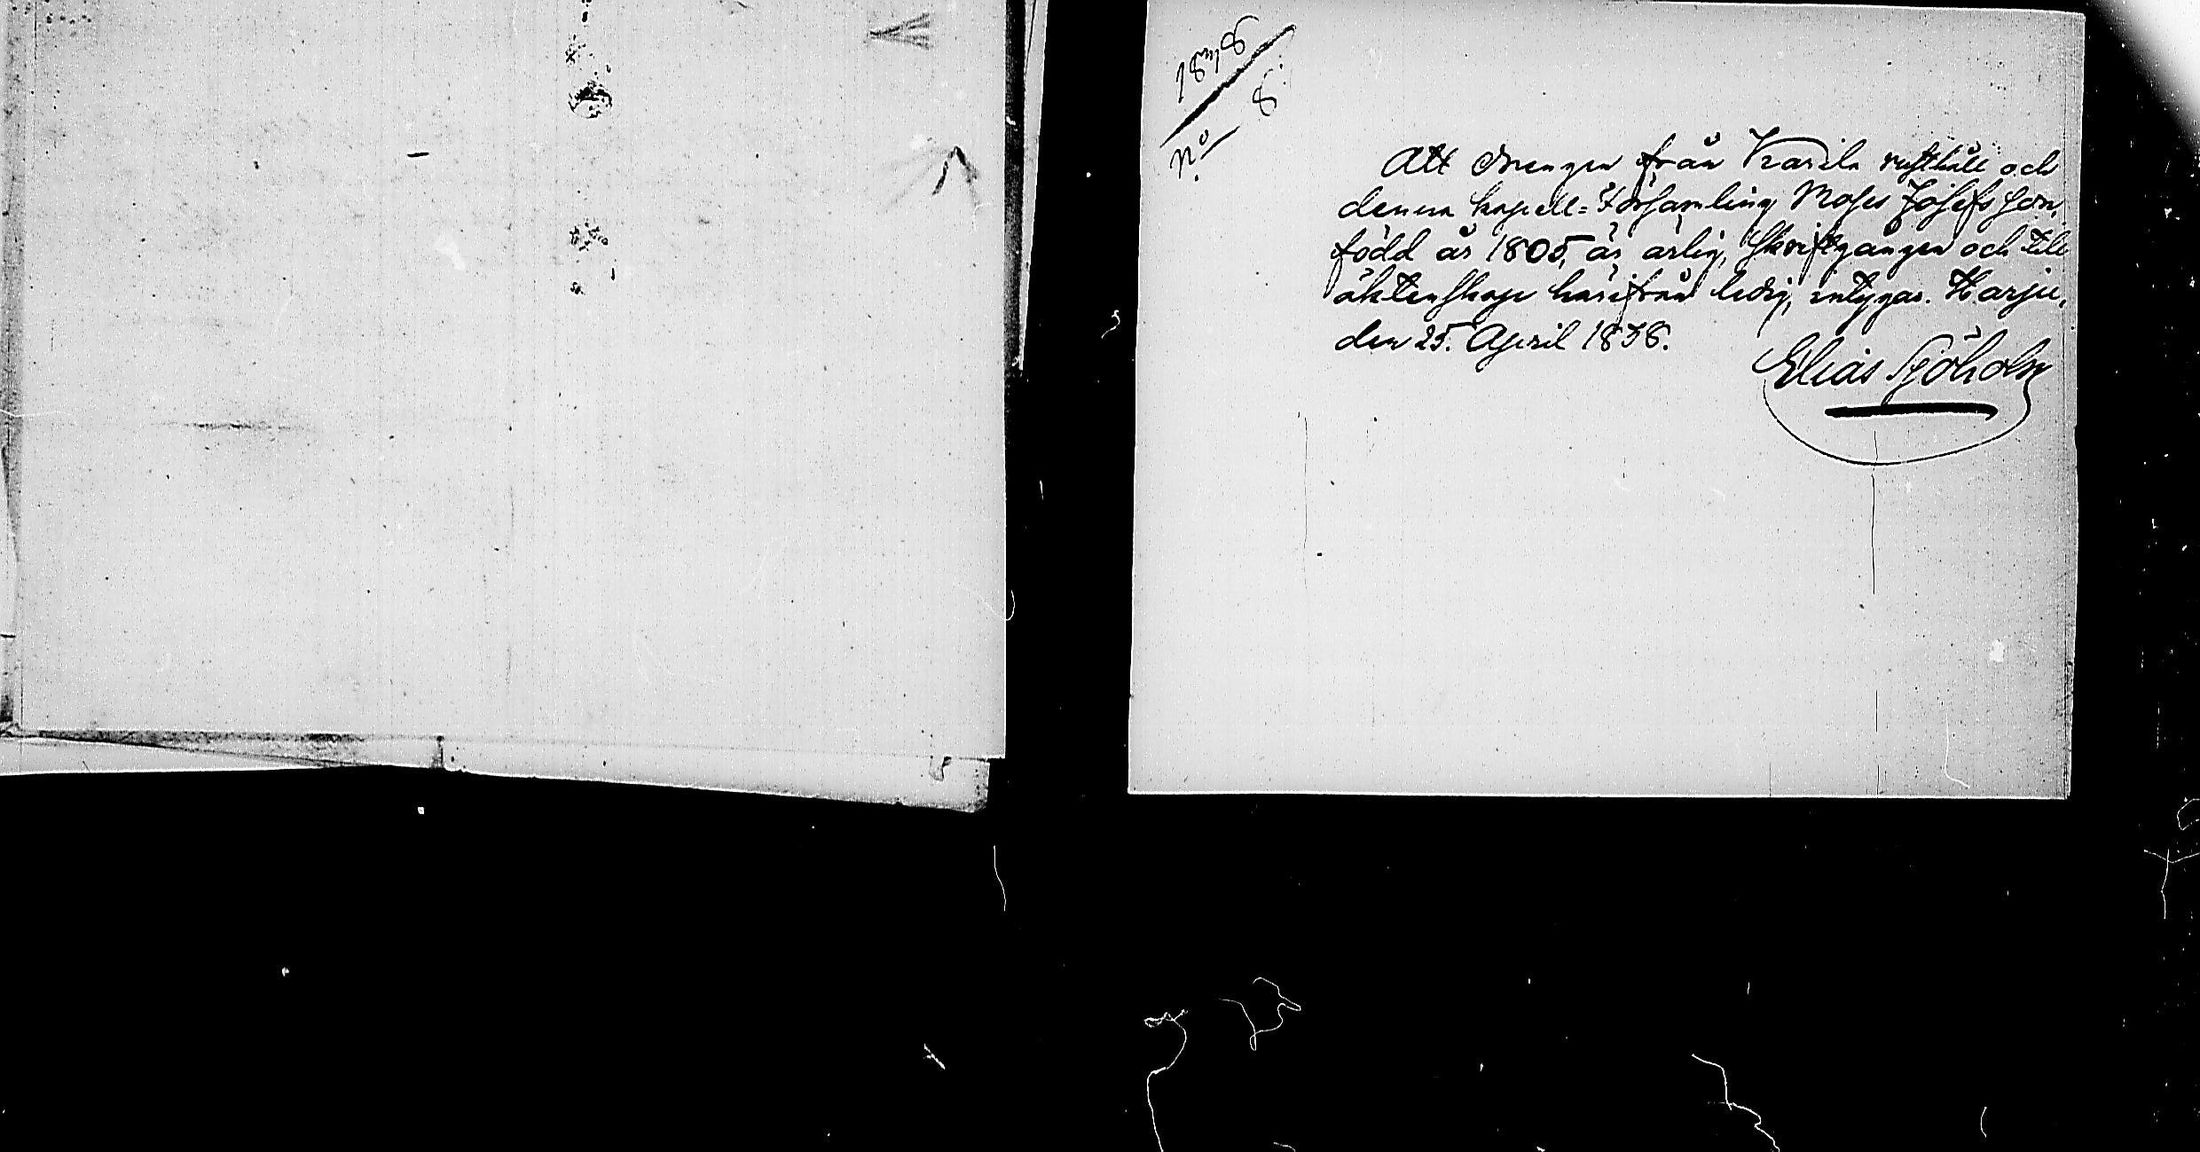 18 3/7 8
No 8.
Att drengen från Karila rusthåll och
denna kapell-Församling Moses Josefsson,
född år 1805, är ärlig, skriftgången och till
äktenskap härifrån ledig, intygas. Harju,
den 25. April 1838.
Elias Sjöholm